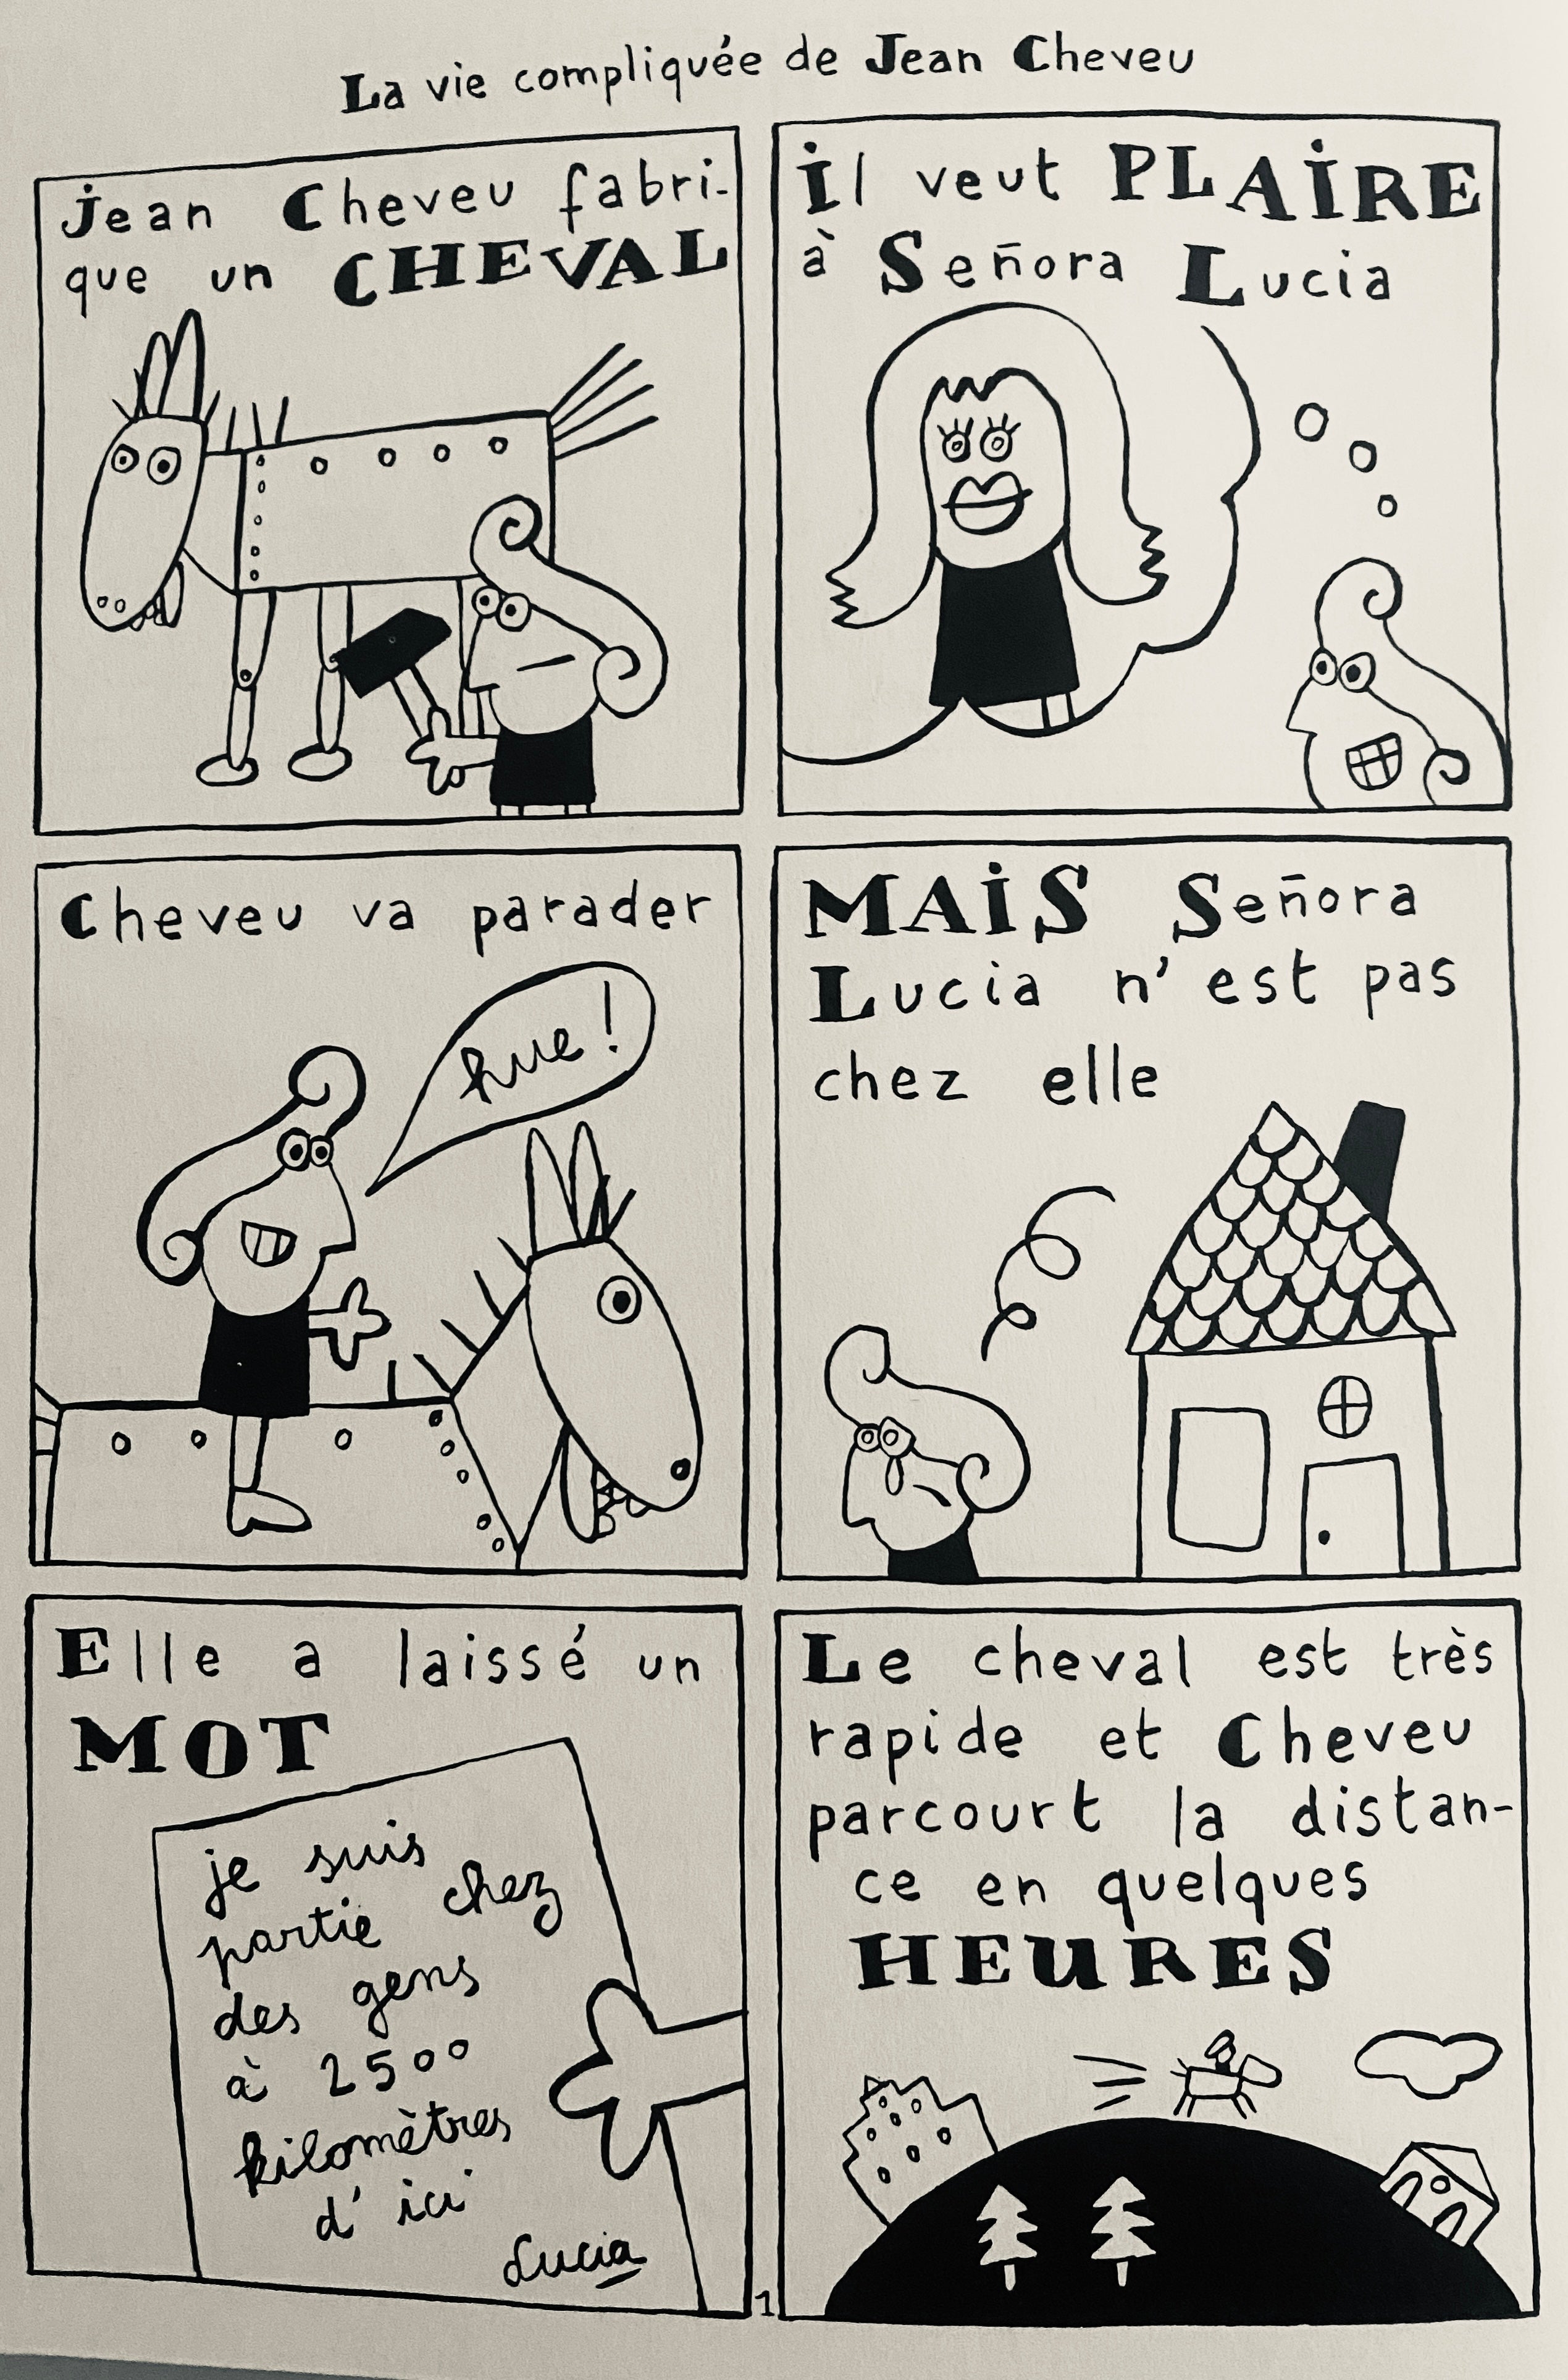 La vie compliquée de Jean Cheveu
Jean Cheveu fabri-
que un CHEVAL
il veut PLAiRE
à Señora Lucia
Cheveu va parader
hue !
MAiS Señora
Lucia n'est pas
chez elle
Elle a laissé un
MOT
je suis
partie chez
des gens
à 2500
kilomètres
d'ici
Lucia
Le cheval est très
rapide et Cheveu
parcourt la distan-
ce en quelques
HEURES
1